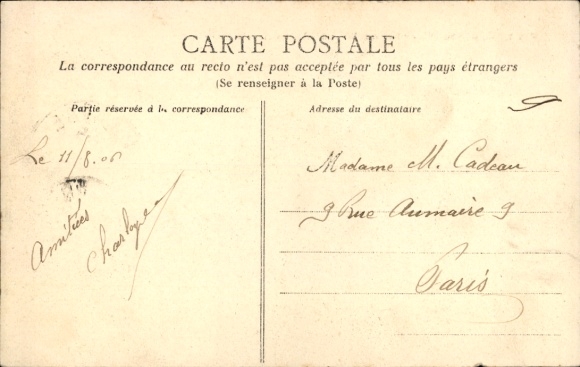 CARTE POSTALE
La correspondance au recto n'est pas acceptée par tous les pays étrangers
(Se renseigner à la Poste)
Partie réservée à la correspondance
Adresse du destinataire
Le 11/8.06
Amitiés
Madame M. Cadeau
9 Rue Aumaire 9
Paris